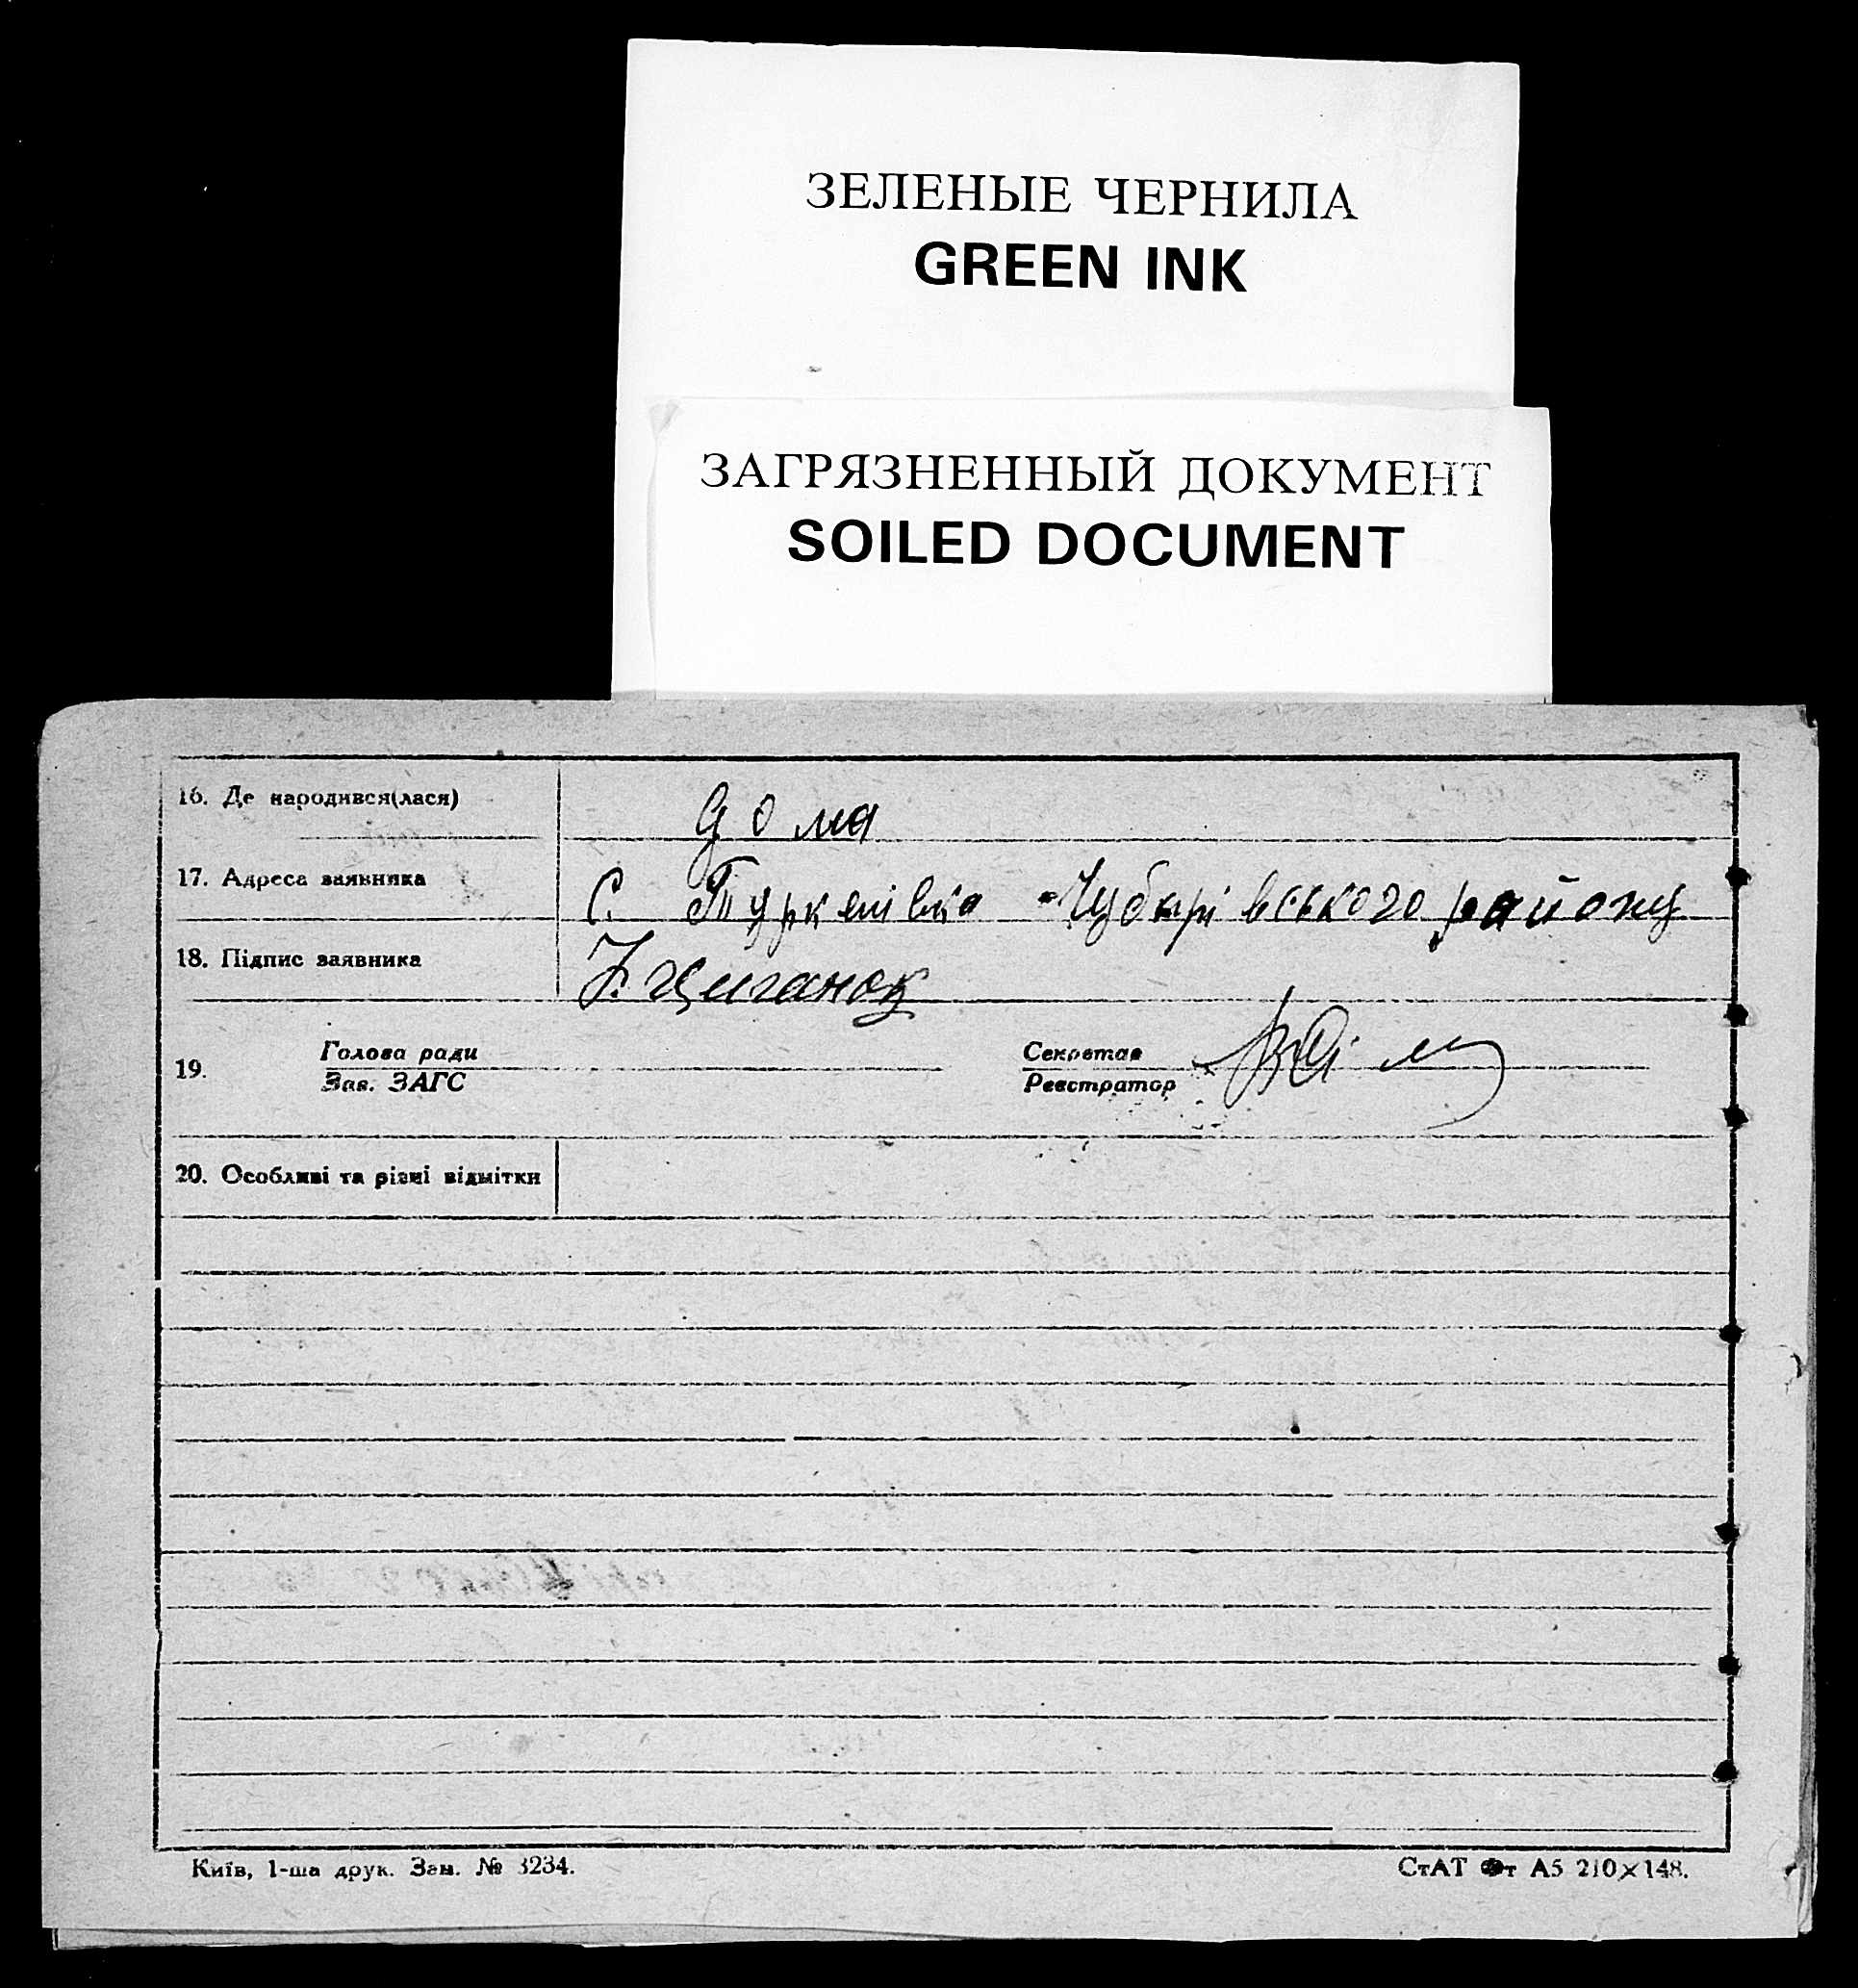 ЗЕЛЕНЫЕ ЧЕРНИЛА
GREEN INK
ЗАГРЯЗНЕННЫЙ ДОКУМЕНТ
SOILED DOCUMENT
16. Де народився(лася) дома
17. Адреса заявника С. Туркенівка Чубарівського району
18. Підпис заявника Циганок
19. Голова ради Секретар
Зав. ЗАГС Реєстратор
20. Особливі та різні відмітки
Київ, 1-ша друк. Зам. № 3234.
СтАТ Фт А5 210×148.